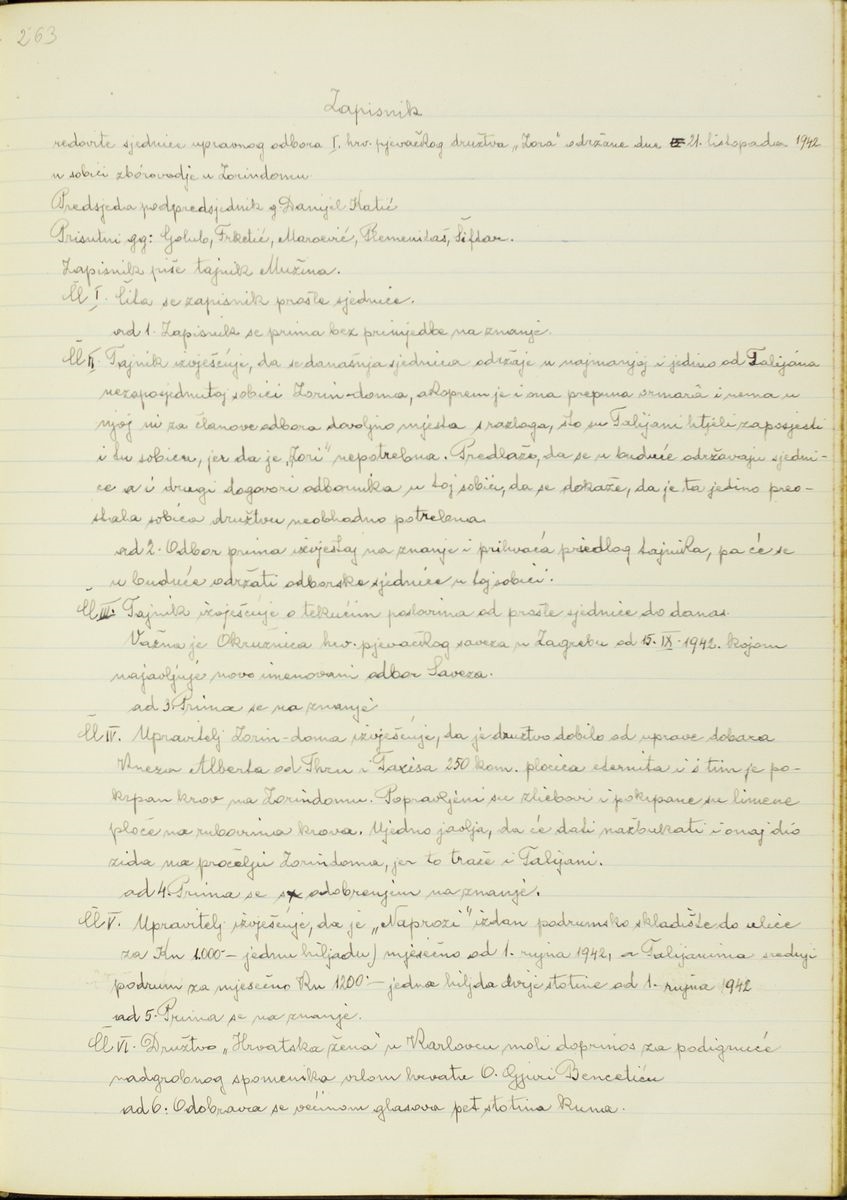 263
Zapisnik
redovite sjednice upravnog odbora I. hrv. pjevačkog družtva „Zora" održane dne 21. listopada 1942
u sobici zborovodje u Zorindomu
Predsjeda podpredsjednik g Danijel Katić
Prisutni gg: Golub, Trketić, Maroević, Plemenitaš, Šiftar.
Zapisnik piše tajnik Mužina.
Čl I. Čita se zapisnik prošle sjednice.
ad 1. Zapisnik se prima bez primjedbe na znanje.
Čl II. Tajnik izvješćuje, da se današnja sjednica održaje u najmanjoj i jedino od Talijana
nezaposjednutoj sobici Zorin-doma, akoprem je i ona prepuna ormarâ i nema u
njoj ni za članove odbora dovoljno mjesta s razloga, što su Talijani htjeli zaposjesti
i tu sobicu, jer da je „Zori" nepotrebna. Predlaže, da se u buduće održavaju sjedni-
ce a i drugi dogovori odbornika u toj sobici, da se dokaže, da je ta jedino preo-
stala sobica družtvu neobhodno potrebna.
ad 2. Odbor prima izvještaj na znanje i prihvaća priedlog tajnika, pa će se
u buduće održati odborske sjednice u toj sobici.
Čl III. Tajnik izvješćuje o tekućim poslovima od prošle sjednice do danas.
Važna je Okružnica hrv. pjevačkog saveza u Zagrebu od 15. IX. 1942. kojom
najavljuje novo imenovani odbor Saveza.
ad 3. Prima se na znanje
Čl IV. Upravitelj Zorin-doma izvješćuje, da je družtvo dobilo od uprave dobara
Kneza Alberta od Thru i Taxisa 250 kom. pločica eternita i s tim je po-
krpan krov na Zorindomu. Popravljeni su zliebovi i pokrpane su limene
ploče na rubovima krova. Ujedno javlja, da će dati nažbukati i onaj dio
zida na pročelju Zorindoma, jer to traže i Talijani.
ad 4. Prima se s odobrenjem na znanje.
Čl V. Upravitelj izvješćuje, da je „Naprozi" izdan podrumsko skladište do ulice
za Kn 1.000·– jednu hiljadu) mjesečno od 1. rujna 1942, a Talijanima srednji
podrum za mjesečno Kn 1200·– jedna hiljda dvije stotine od 1. rujna 1942
ad 5. Prima se na znanje.
Čl VI. Društvo „Hrvatska žena" u Karlovcu moli doprinos za podignuće
nadgrobnog spomenika vrlom hrvatu O. Gjuri Bencetiću
ad 6. Odobrava se većinom glasova pet stotina kuna.